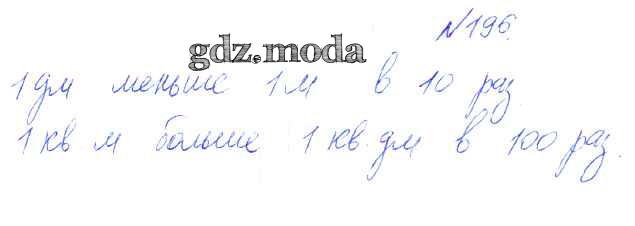 №196.
gdz.moda
1 дм меньше 1 м в 10 раз.
1 кв м больше 1 кв. дм в 100 раз.